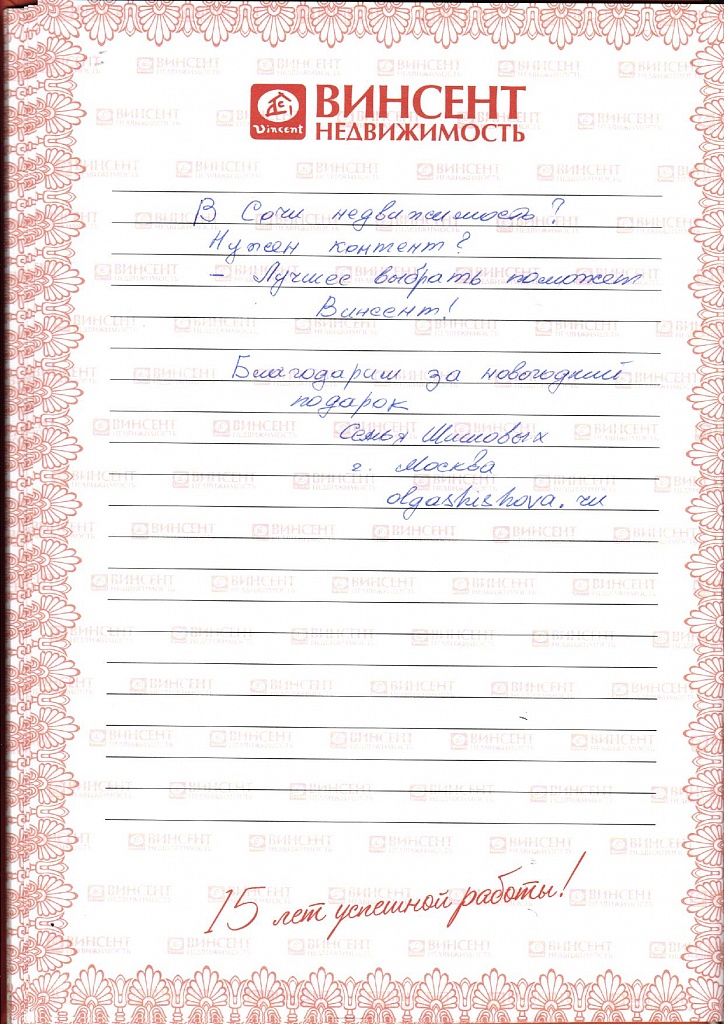 Vincent
ВИНСЕНТ
НЕДВИЖИМОСТЬ
В Сочи недвижимость?
Нужен контент?
- Лучшее выбрать поможет
Винсент!
Благодарим за новогодний
подарок
Семья Шишовых
г. Москва
olgashishova.ru
15 лет успешной работы!